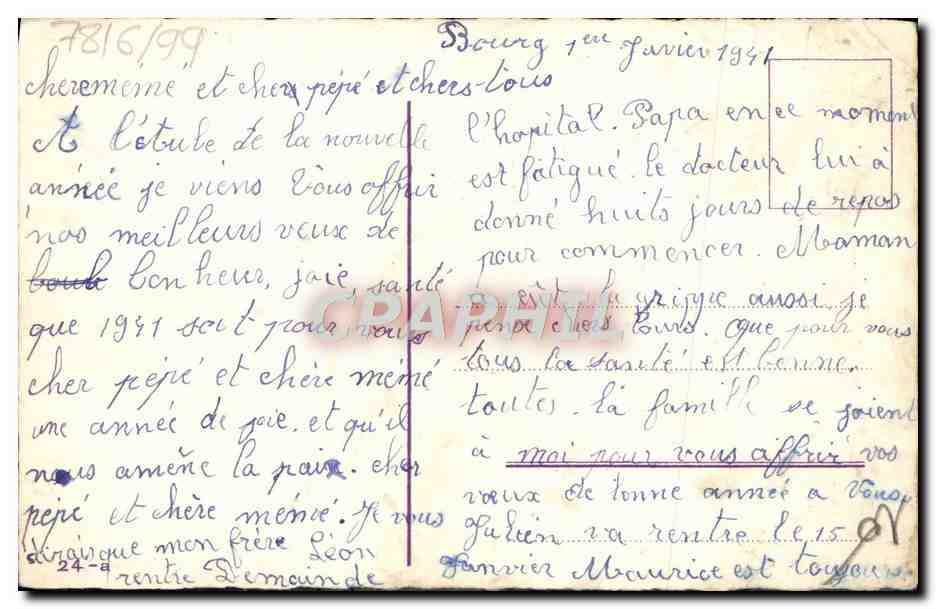 7816/99
Bourg 1er Janvier 1941
chere mémé et cher pépé et chers tous
A l'étube de la nouvelle
année je viens vous offrir
nos meilleurs veux de
bonheur, joie, santé
que 1941 soit pour vous
cher pépé et chère mémé
une année de joie. et qu'il
nous amène la paix. cher
pépé et chère mémé. Je vous
dirais que mon frère Léon
rentre Demain de
24-a
l'hopital. Papa en ce moment
est fatigué. le docteur lui à
donné huits jours de repos
pour commencer. Maman
la grippe aussi je
pense chers tous. que pour vous
tous la santé est bonne.
toutes la famille se joient
à moi pour vous affrir vos
vœux de bonne année a vous.
Julien va rentre le 15
Janvier Maurice est toujours
CPAPHIL